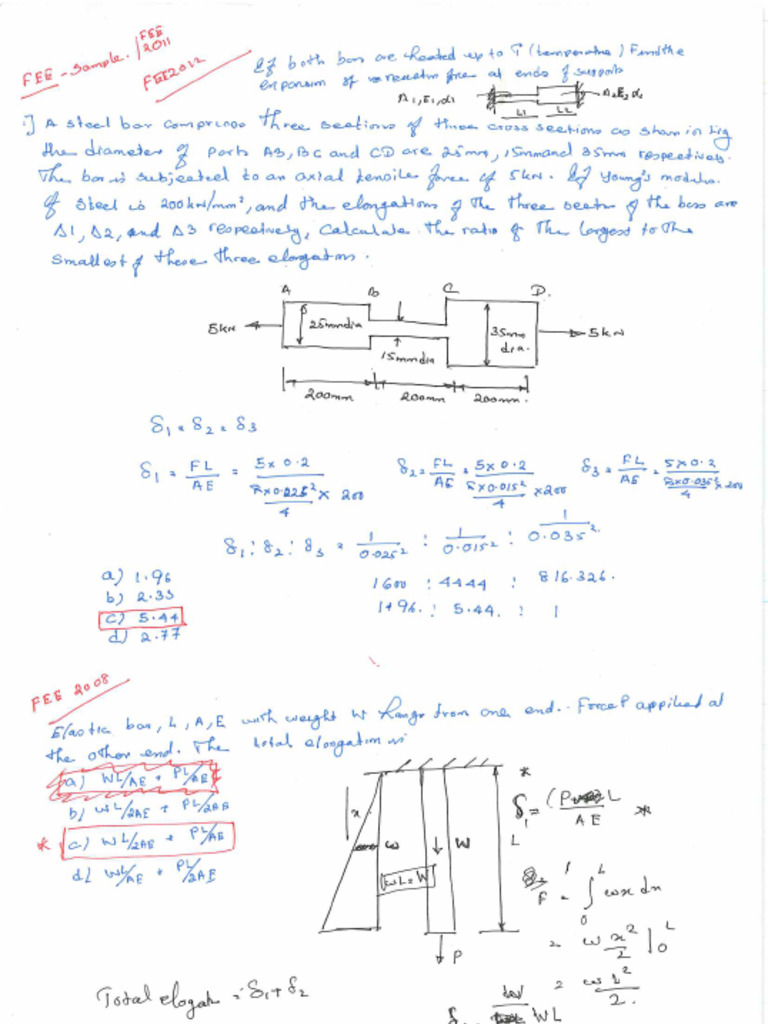 FEE - Sample. / FEE 2011
FEE 2012
If both bars are heated up to T (temperature) Find the
expansion of reaction force at ends of supports
A1, E1, α1
A2 E2 α2
L1 L2
A steel bar comprises three sections of three cross sections as shown in Fig
the diameter of parts AB, BC and CD are 25mm, 15mm and 35mm respectively.
The bar is subjected to an axial tensile force of 5kN. If Young's modulus
of steel is 200 kN/mm², and the elongations of the three sectn of the bars are
Δ1, Δ2, and Δ3 respectively, Calculate the ratio of the largest to the
smallest of these three elongation.
A B C D.
5kN
25mm dia
15mm dia
35mm dia.
5kN
200mm 200mm 200mm.
δ1 = δ2 = δ3
δ1 = FL/AE = 5 x 0.2 / (π x 0.025²/4 x 200)
δ2 = FL/AE = 5 x 0.2 / (π x 0.015²/4 x 200)
δ3 = FL/AE = 5 x 0.2 / (π x 0.035²/4 x 200)
δ1 : δ2 : δ3 = 1/0.025² : 1/0.015² : 1/0.035².
1600 : 4444 : 816.326.
1.96 : 5.44. : 1
a) 1.96
b) 2.33
c) 5.44
d) 2.77
FEE 2008
Elastic bar, L, A, E with weight W hangs from one end. Force P applied at
the other end. The total elongation is
a) WL/AE + PL/AE
b) WL/2AE + PL/2AE
* c) WL/2AE + PL/AE
d) WL/AE + PL/2AE
x
w
wL = W
W
P
L
*
δ1 = (P L / AE *
F = ∫0^L wx dx
= w x²/2 |0^L
= wL²/2.
Total elogatn = δ1 + δ2
WL